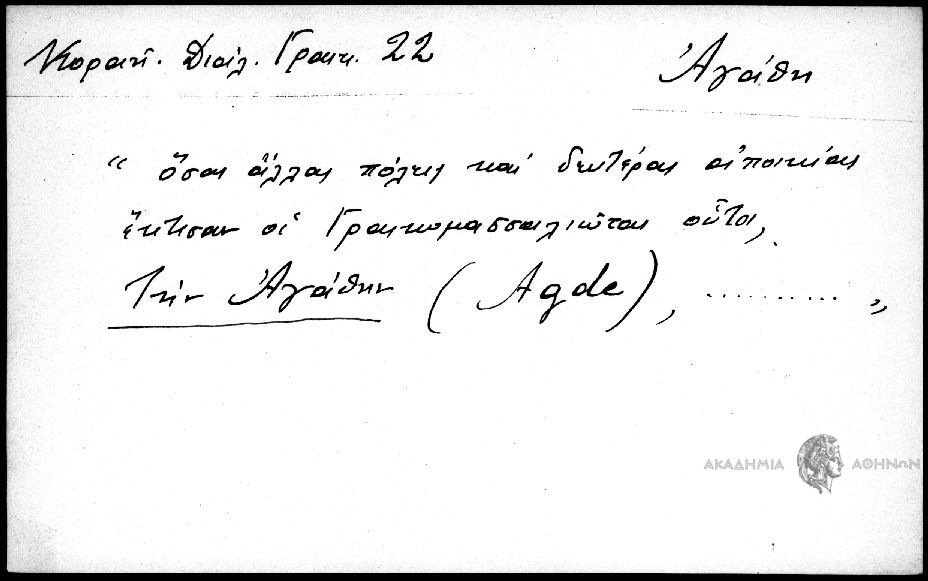 Κοραῆ. Διάλ. Γραικ. 22
Ἀγάθη
“ ὅσας ἄλλας πόλεις καὶ δευτέρας ἀποικίας
ἔκτισαν οἱ Γραικομασσαλιῶται οὗτοι,
τὴν Ἀγάθην (Agde), .......... „
ΑΚΑΔΗΜΙΑ ΑΘΗΝΩΝ